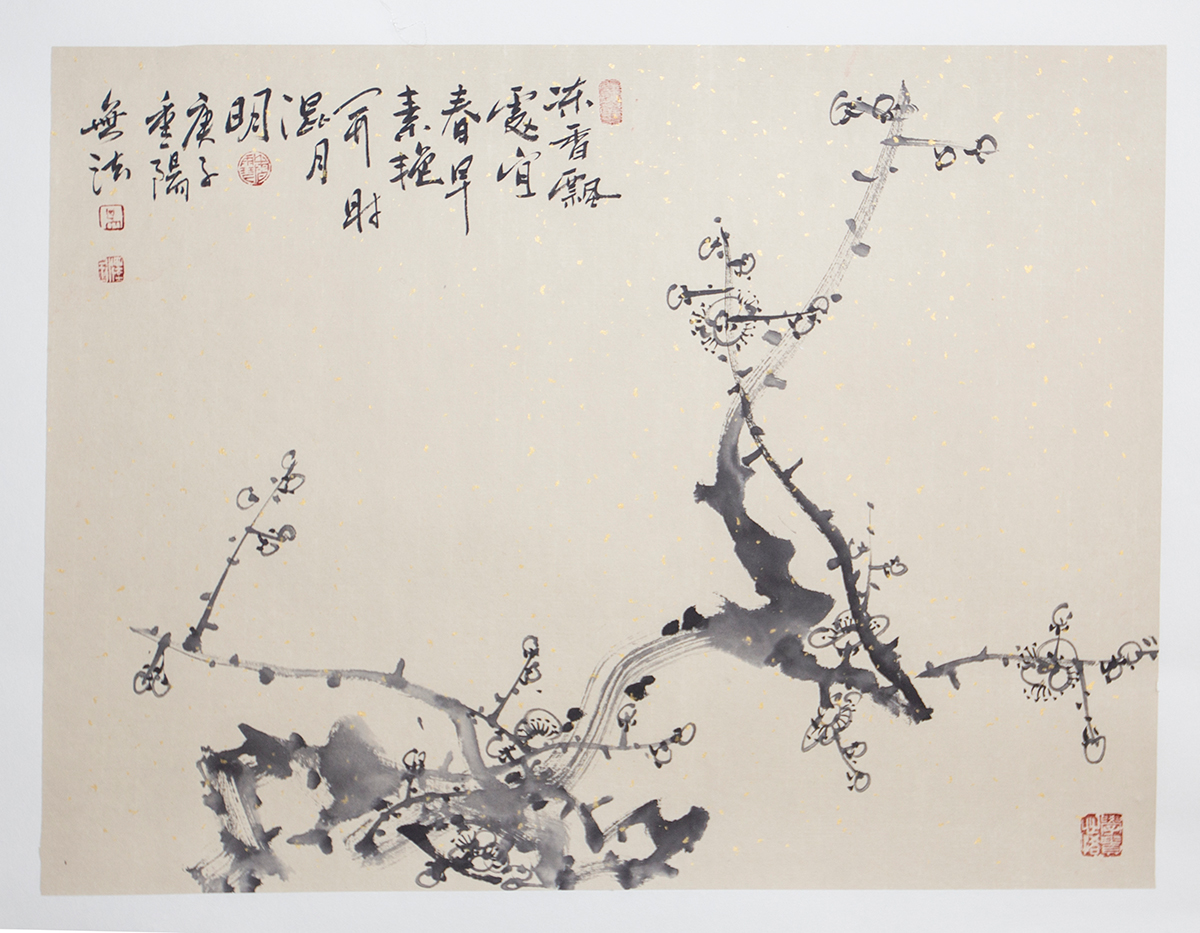 冻香飄
處宜
春早
素艳
開時
混月
明
庚子
重陽
無法